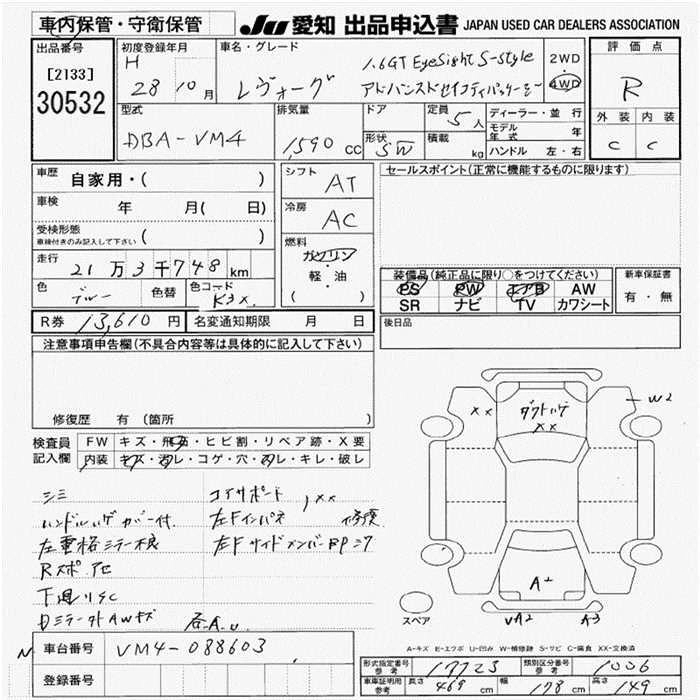 車内保管・守衛保管
JU 愛知 出品申込書 JAPAN USED CAR DEALERS ASSOCIATION
出品番号
[2133]
30532
初度登録年月
H 28 10月
車名・グレード
レヴォーグ
1.6GT EyeSight S-style
アドバンスドセイフティパッケージ
2WD
4WD
評価点
R
外装 内装
C C
型式
DBA-VM4
排気量
1,590 cc
ドア
形状
SW
定員 5人
積載 kg
ディーラー・並行
モデル年式 年
ハンドル 左・右
車歴 自家用・( )
車検 年 月( 日)
受検形態
車検付きのみ記入して下さい ( )
走行 21万3千748km
色 ブルー 色替
色コード K3X
シフト AT
冷房 AC
燃料
ガソリン
軽・油
( )
セールスポイント(正常に機能するものに限ります)
装備品(純正品に限り○をつけてください)
PS PW エアB AW
SR ナビ TV カワシート
新車保証書
有・無
R券 13,610円
名変通知期限 月 日
後日品
注意事項申告欄(不具合内容等は具体的に記入して下さい)
修復歴 有 (箇所 )
検査員記入欄
FW キズ・飛石・ヒビ割・リペア跡・X要
内装 キズ・汚レ・コゲ・穴・スレ・キレ・破レ
シミ
ハンドルハゲ カバー付
Rスポ
下廻りサビ
コアサポート XX
左Fインパネ 修復
左Fサイドメンバー
XX
ダクトハゲ
XX
W2
A+
A2
A3
スペア
A-キズ E-エクボ U-凹み W-補修跡 S-サビ C-腐食 XX-交換済
車台番号 VM4-088603
登録番号
形式指定番号参考 17723
類別区分番号参考 1006
車庫証明用参考 長さ 469 cm 幅 178 cm 高さ 149 cm